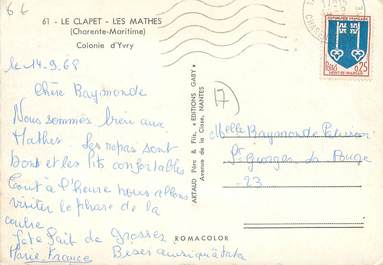 66
61 - LE CLAPET - LES MATHES
(Charente-Maritime)
Colonie d'Yvry
le 14.9.68
Chère Raymonde
Nous sommes bien aux
Mathes. Les repas sont
bons et les lits confortables
Tout à l'heure nous allons
visiter le phare de la
coubre
Marie France
Bises ainsi qu'à tata
ARTAUD Père & Fils • EDITIONS GABY
Avenue de la Close, NANTES
ROMACOLOR
REPUBLIQUE FRANCAISE
POSTES 0,25
MONT-DE-MARSAN
Melle Raymonde
St Georges la Pouge
-23-